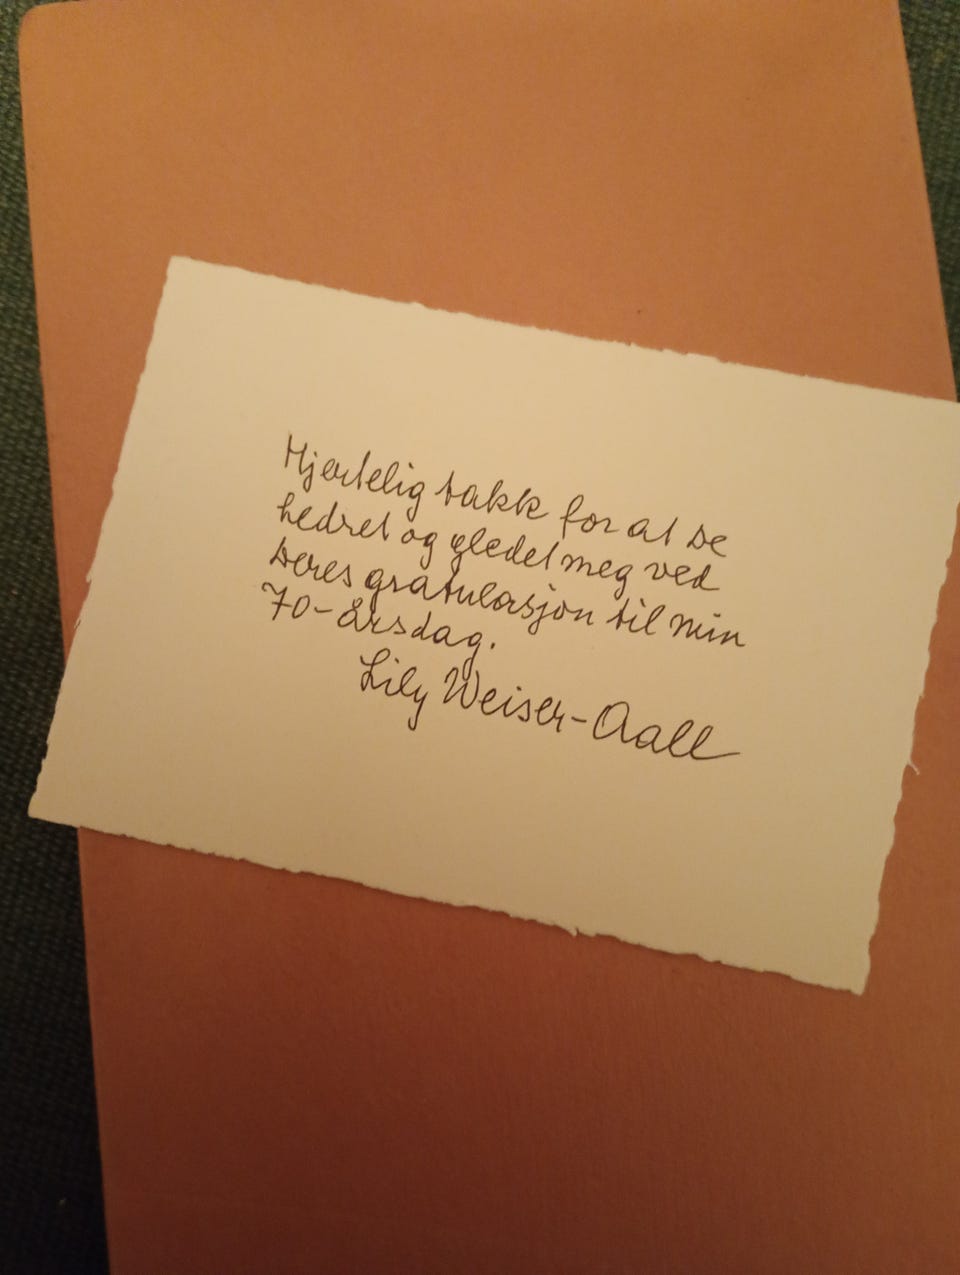 Hjertelig takk for at De
hedret og gledet meg ved
Deres gratulasjon til min
70-årsdag.
Lily Weiser-Aall